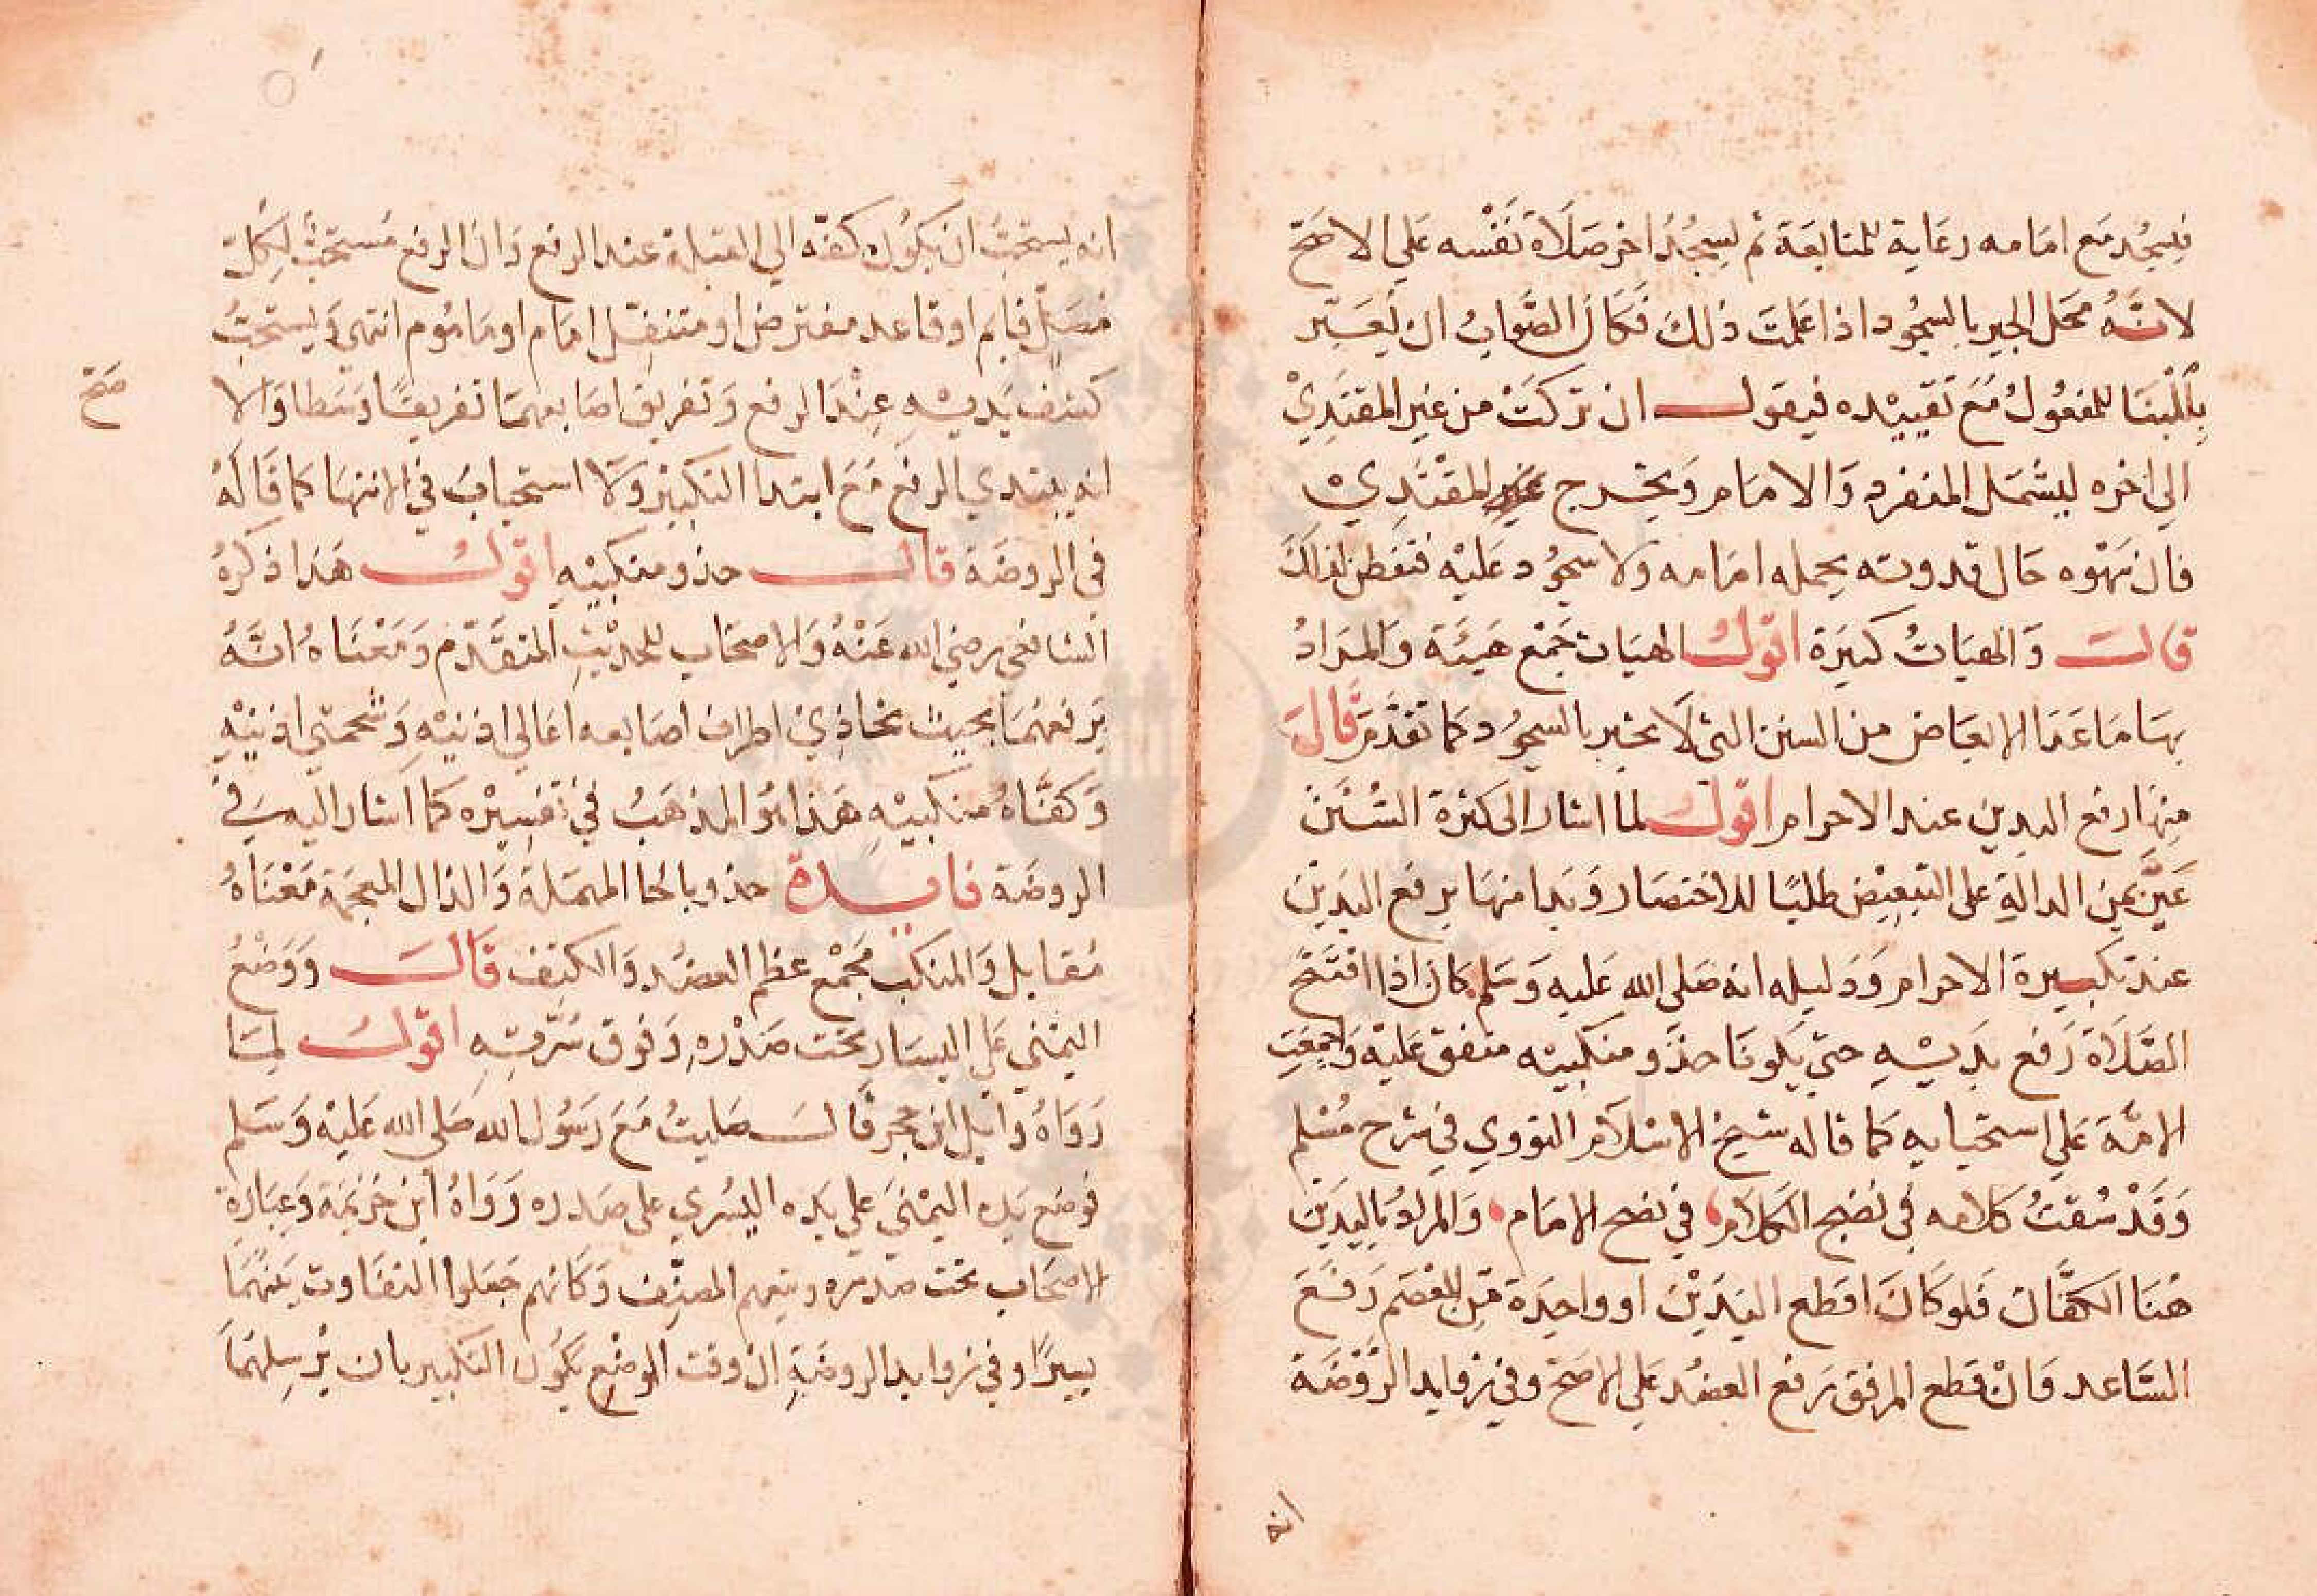 فيسجد مع امامه رعاية للمتابعة ثم يسجد اخر صلاة نفسه علي الاصح
لانه محل الجبر بالسجود اذا علمت ذلك فكان الصواب ان يعبر
بالبنا للمفعول مع تقييده فيقول ان تركت من غير المقتدي
الي اخره ليشمل المنفرد والامام ويخرج المقتدي
فان سهوه حال قدوته يحمله امامه ولا سجود عليه فتفطن لذلك
قال والهيات كثيرة اقول الهيات جمع هيئة والمراد
بها ما عدا الابعاض من السنن التي لا تجبر بالسجود كما تقدم قال
منها رفع اليدين عند الاحرام اقول لما اشار الى كثرة السنن
عبر بمن الدالة على التبعيض طلبا للاختصار وبدا منها برفع اليدين
عند تكبيرة الاحرام ودليله انه صلى الله عليه وسلم كان اذا افتتح
الصلاة رفع يديه حتي يكونا حذو منكبيه متفق عليه واجمعت
الامة علي استحبابه كما قاله شيخ الاسلام النووي في شرح مسلم
وقد سقت كلامه في نضج الكلام في نصح الامام والمراد باليدين
هنا الكفان فلو كان اقطع اليدين او واحدة من المعصم رفع
الساعد وان قطع المرفق رفع العضد علي الاصح وفي زوايد الروضة
انه
انه يستحب ان يكون كفه الي القبلة عند الرفع وان الرفع مستحب لكل
مصل قايم او قاعد مفترض او متنفل امام او ماموم انتهي ويستحب
كشف يديه عند الرفع وتفريق اصابعهما تفريقا وسطا والا
صح
انه يبتدي الرفع مع ابتدا التكبير ولا استحباب في الانتها كما قاله
في الروضة قال حذو منكبيه اقول هذا ذكره
الشافعي رضي الله عنه والاصحاب للحديث المتقدم ومعناه انه
يرفعهما بحيث تحاذي اطراف اصابعه اعالي اذنيه وشحمتي اذنيه
وكفاه منكبيه هذا هو المذهب في تفسيره كما اشار اليه في
الروضة فايدة حذو بالحا المهملة والذال المعجمة معناه
مقابل والمنكب مجمع عظم العضد والكتف قال ووضع
اليمني علي اليسار تحت صدره وفوق سرته اقول لما
رواه وايل ابن حجر قال صليت مع رسول الله صلى الله عليه وسلم
فوضع يده اليمني علي يده اليسري على صدره رواه ابن خزيمة وعبارة
الاصحاب تحت صدره وتبعهم المصنف وكانهم جعلوا التفاوت بينهما
يسيرا وفي زوايد الروضة ان وقت الوضع يكون التكبير بان يرسلهما